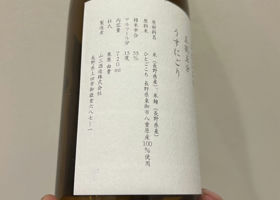 うすにごり
原材料名　米（長野県産）、米麹（長野県産）
原料米　ひとごこち 長野県東御市八重原産100%使用
精米歩合　55%
アルコール分　15度
内容量　720ml
杜氏　栗原由貴
製造者　山三酒造株式会社
長野県上田市御嶽堂六八七－一